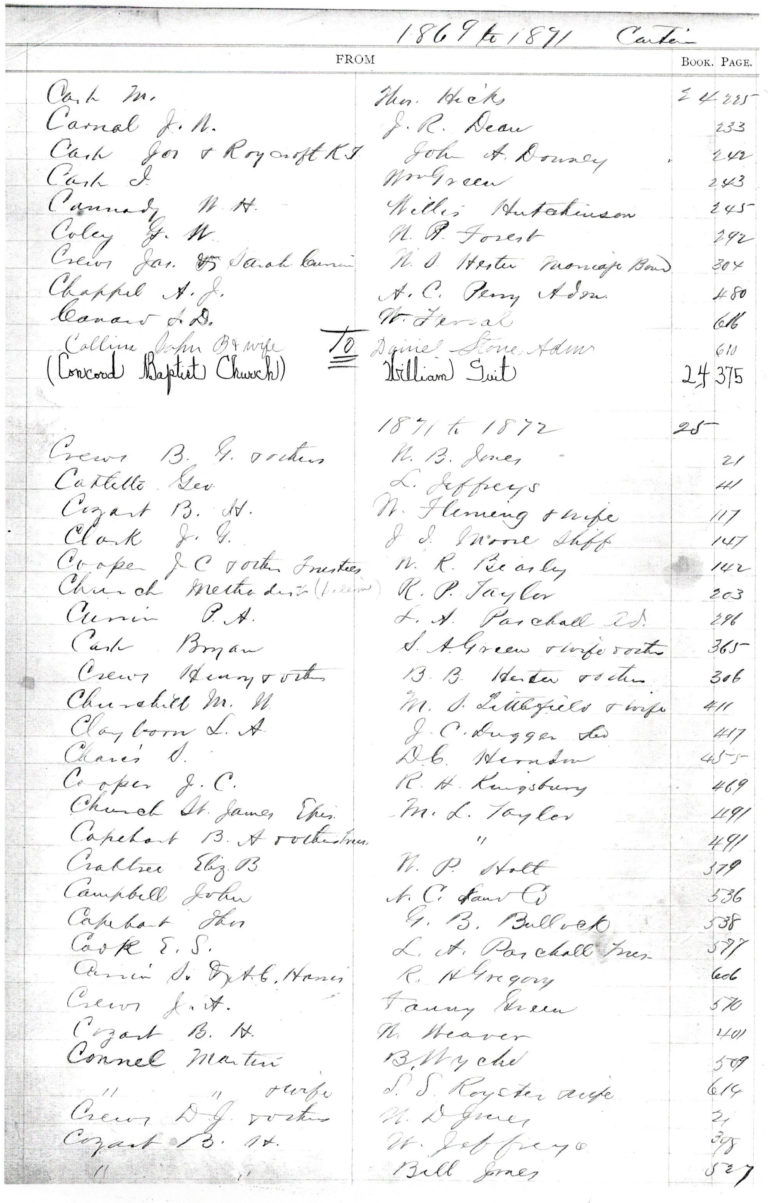 1869 to 1891
FROM BOOK. PAGE.
Cash M. Thos. Hicks 24 225
Carnal J. N. J. R. Dean 233
Cash Jos & Roycroft John A. Downey 242
Cash J. Wm Green 243
Cannady W. H. Willis Hutchinson 245
Coley W. N. P. Forest 292
Crews Jas. Sarah N. S. Hester Marriage Bond 304
Chappel A. J. A. C. Perry Adm. 480
D. W. 616
Collins John B & wife To Daniel Stone Adm 610
(Concord Baptist Church) William Suit 24 375
1871 to 1872 25
Crews B. G. & others N. B. Jones 21
Geo L. Jeffreys 41
Cozart B. H. W. Fleming & wife 117
Clark J. G. J. I. Moore Shff 147
Cooper J C & others Trustees N. R. Beasly 142
Church Methodist R. P. Taylor 203
Currin P. A. L. A. Paschall 296
Cash Bryan S. A Green & wife & others 365
Crews Henry & others B. B. Hester & others 306
Churchill M. W M. S. Littlefield & wife 411
Clayborn L. A J. C. Dugger 417
S. D. C. Herndon 455
Cooper J. C. R. H. Kingsbury 469
Church St. James Epis. M. L. Taylor 491
Capehart B. A & others Trus. " 491
Crabtree Eliz B N. P. Holt 379
Campbell John N. C. Land Co 536
Capehart Thos G. B. Bullock 538
Cook E. S. L. A. Paschall Trus. 577
Currin S. A. C. Harris R. H Gregory 606
Crews J. A. Fanny Green 570
Cozart B. H. N Weaver 401
Connel Martin B. Wyche 509
" " & wife S. S. Royster & wife 614
Crews D. J. & others N. D Jones 21
Cozart B. H. W. Jeffreys 398
" " Bill Jones 527